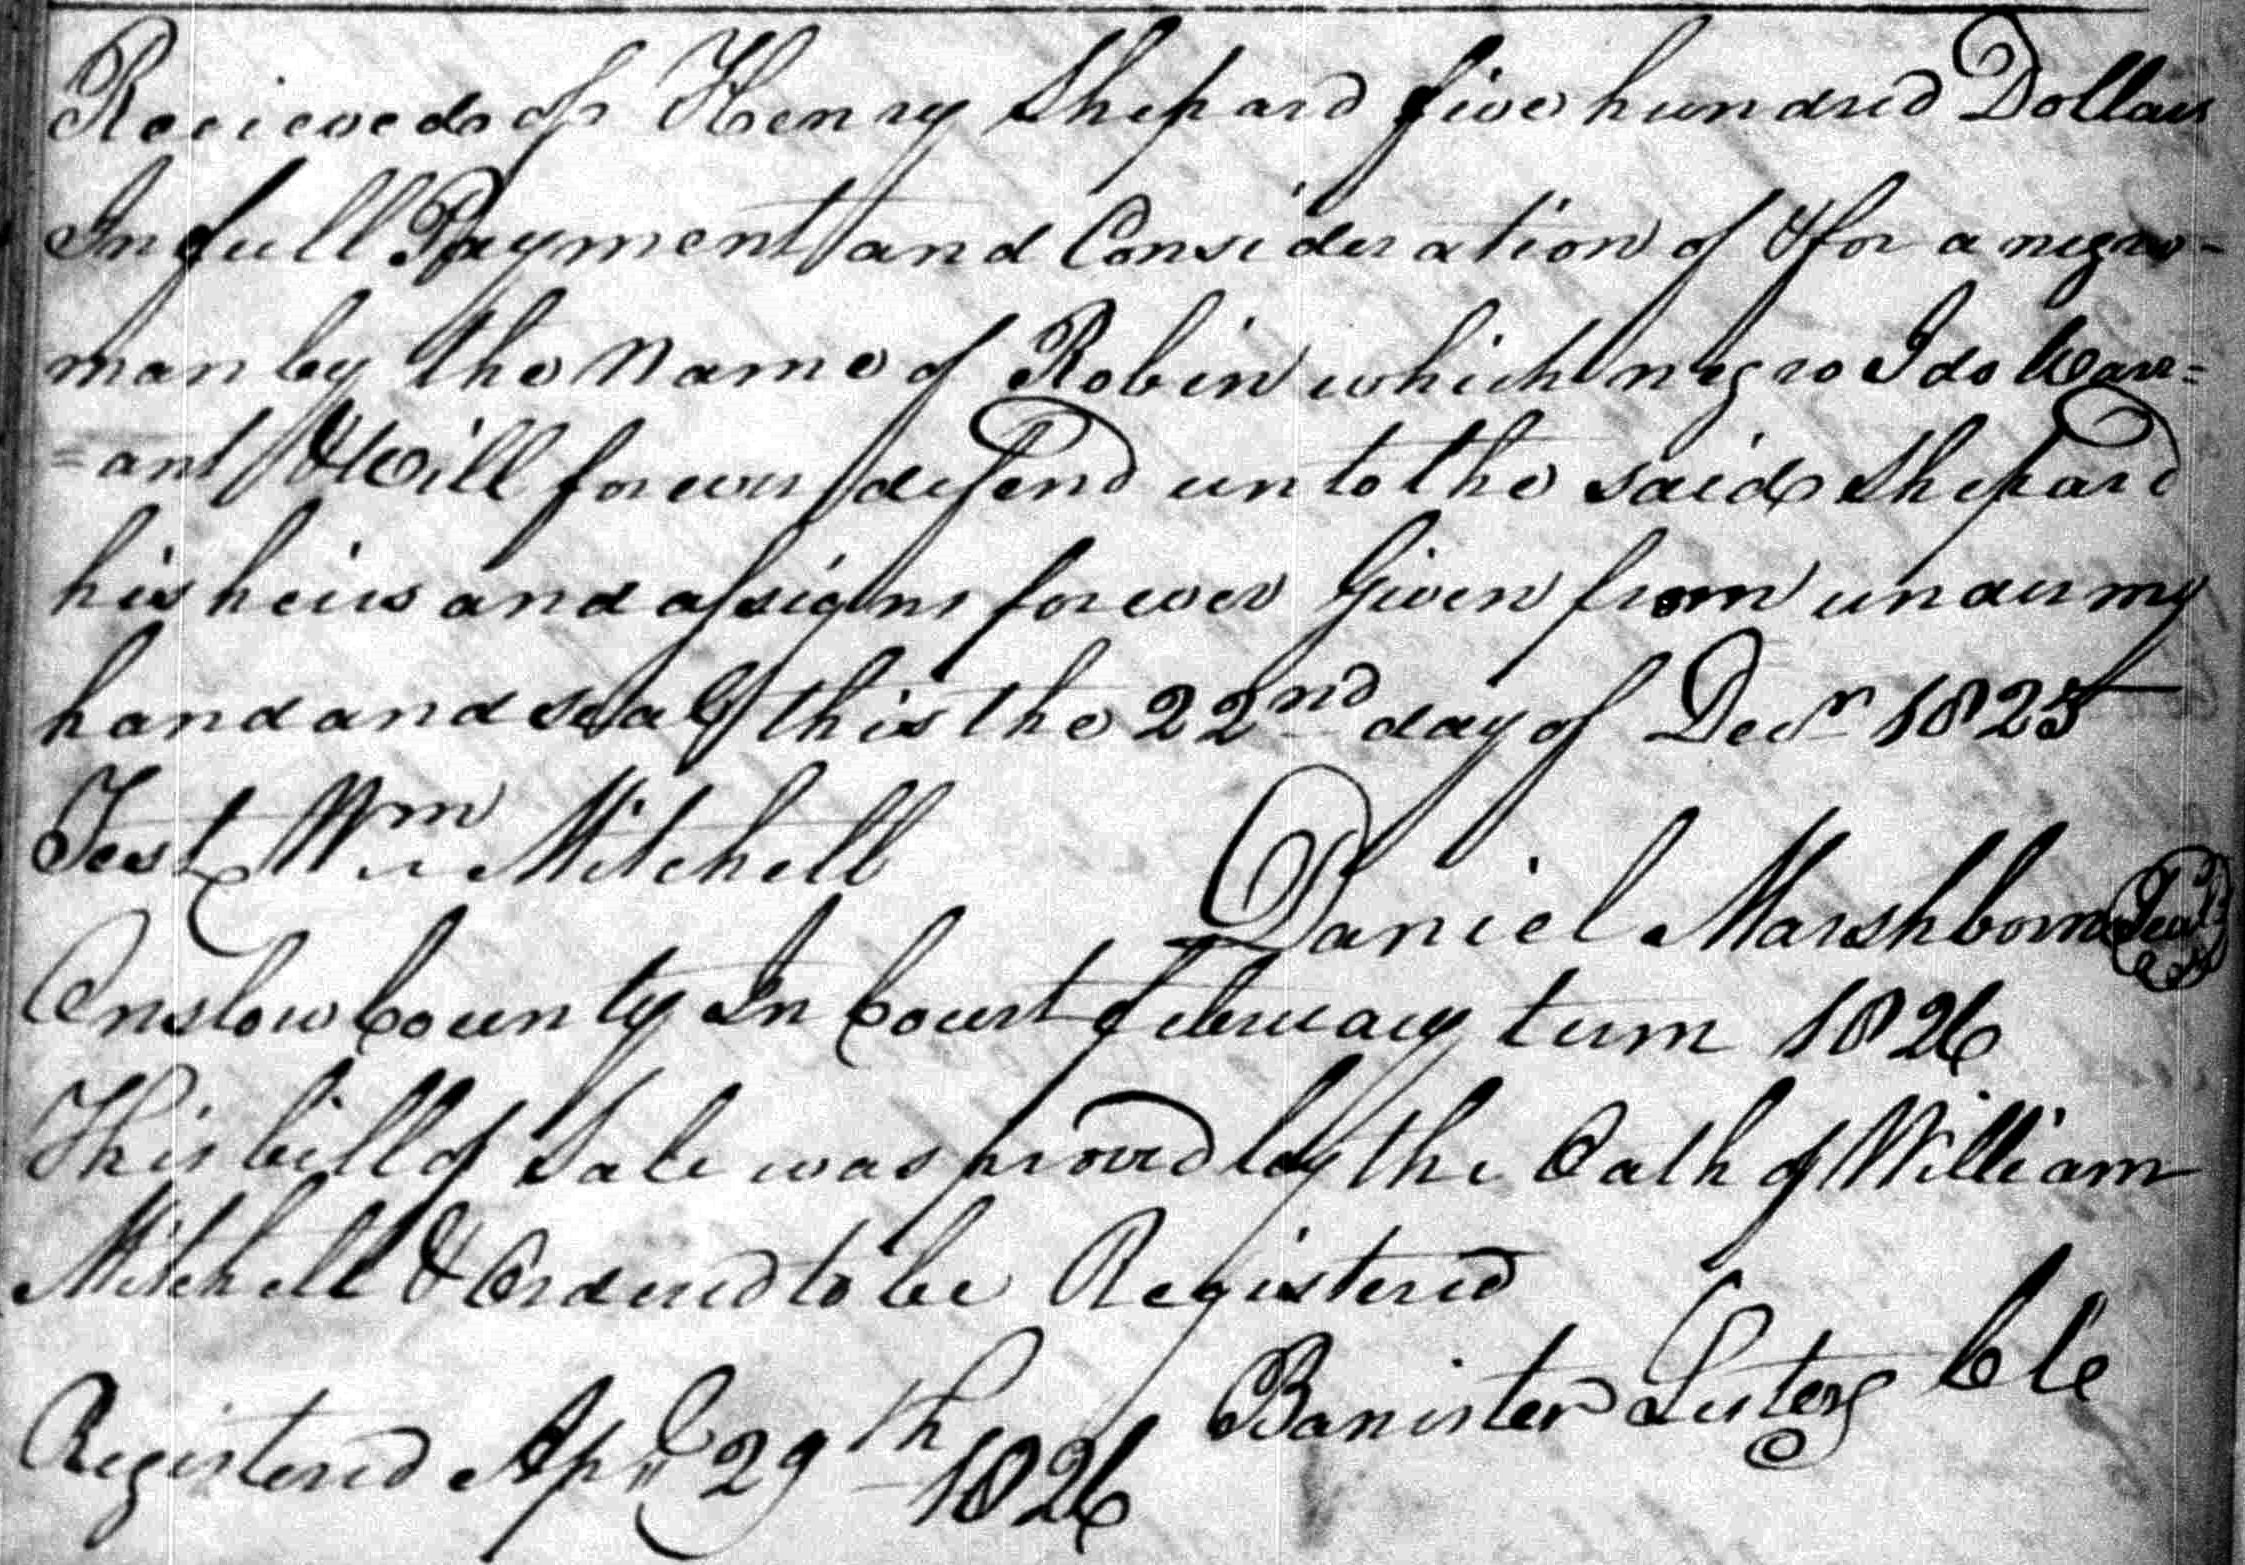 Recieved of Henry Shepard five hundred Dollars
In full Payment and Consideration of & for a negro-
man by the Name of Robin which negro I do Warr=
=ant & Will forever defend unto the said Shepard
his heirs and assigns forever Given from under my
hand and seal this the 22nd day of Decr 1825
Test Wm Mitchell
Daniel Marshborn Seal
Onslow County In Court February term 1826
This bill of Sale was proved by the Oath of William
Mitchell & Ordered to be Registered
Banister Lester Clk
Registered Apl 29th 1826